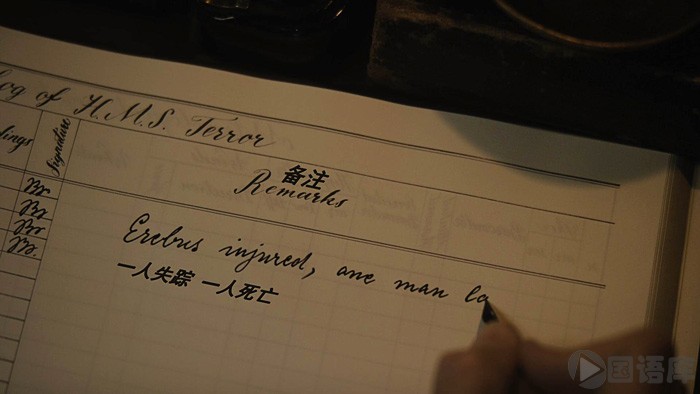 log of H.M.S. Terror
Signature
备注
Remarks
Erebus injured, one man lo
一人失踪 一人死亡
国语库